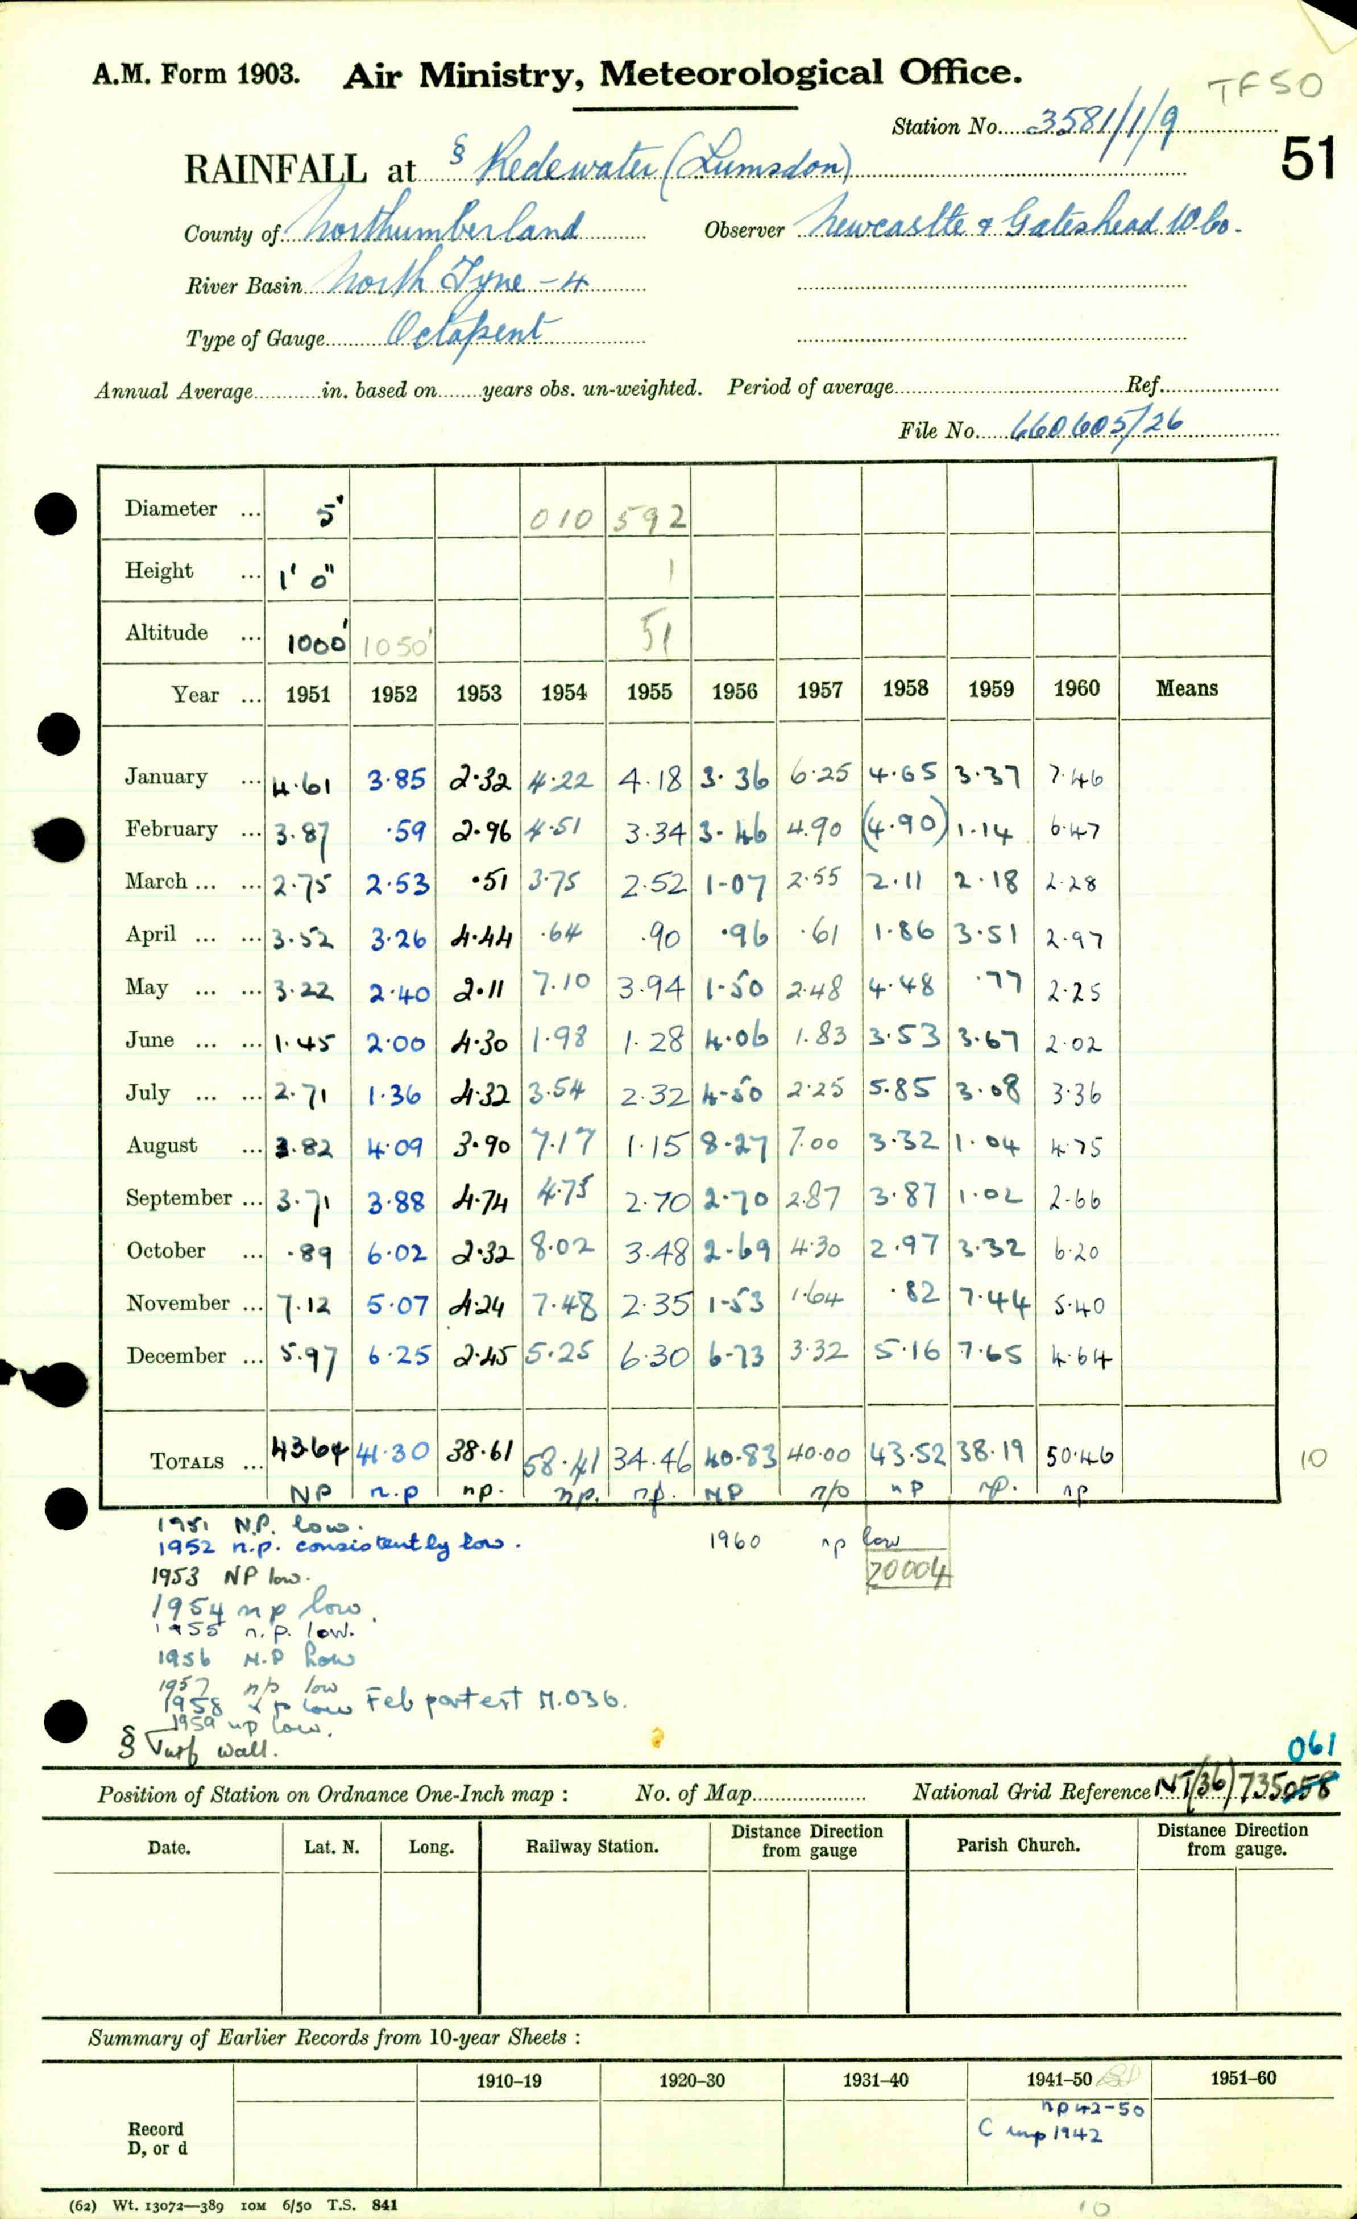 A.M. Form 1903. Air Ministry, Meteorological Office.
TF50
Station No. 3581/1/9
51
RAINFALL at § Redewater (Lumsdon)
County of Northumberland Observer Newcastle & Gateshead W.Co.
River Basin North Tyne - 4
Type of Gauge Octapent
Annual Average in. based on years obs. un-weighted. Period of average Ref.
File No. 660605/26
Diameter ... 5" 010 592
Height ... 1' 0" 1
Altitude ... 1000' 1050' 51
Year ... 1951 1952 1953 1954 1955 1956 1957 1958 1959 1960 Means
January ... 4.61 3.85 2.32 4.22 4.18 3.36 6.25 4.65 3.37 7.46
February ... 3.87 .59 2.96 4.51 3.34 3.46 4.90 (4.90) 1.14 6.47
March ... ... 2.75 2.53 .51 3.75 2.52 1.07 2.55 2.11 2.18 2.28
April ... ... 3.52 3.26 4.44 .64 .90 .96 .61 1.86 3.51 2.97
May ... ... 3.22 2.40 2.11 7.10 3.94 1.50 2.48 4.48 .77 2.25
June ... ... 1.45 2.00 4.30 1.98 1.28 4.06 1.83 3.53 3.67 2.02
July ... ... 2.71 1.36 4.32 3.54 2.32 4.50 2.25 5.85 3.08 3.36
August ... 3.82 4.09 3.90 7.17 1.15 8.27 7.00 3.32 1.04 4.75
September ... 3.71 3.88 4.74 4.75 2.70 2.70 2.87 3.87 1.02 2.66
October ... .89 6.02 2.32 8.02 3.48 2.69 4.30 2.97 3.32 6.20
November ... 7.12 5.07 4.24 7.48 2.35 1.53 1.64 .82 7.44 5.40
December ... 5.97 6.25 2.45 5.25 6.30 6.73 3.32 5.16 7.65 4.64
TOTALS ... 43.64 41.30 38.61 58.41 34.46 40.83 40.00 43.52 38.19 50.46 10
NP n.p np. np. np. NP n/p nP np. np
1951 N.P. low.
1952 n.p. consistently low. 1960 np low
1953 NP low. 20004
1954 n p low.
1955 n.p. low.
1956 N.P low
1957 n/p low
1958 n p low Feb part est M.036.
1959 np low.
§ Turf wall.
061
Position of Station on Ordnance One-Inch map : No. of Map National Grid Reference NT(36) 735058
Date. Lat. N. Long. Railway Station. Distance Direction from gauge Parish Church. Distance Direction from gauge.
Summary of Earlier Records from 10-year Sheets :
1910–19 1920–30 1931–40 1941–50 1951–60
Record D, or d np 42-50
C inp 1942
(62) Wt. 13072—389 10M 6/50 T.S. 841
10